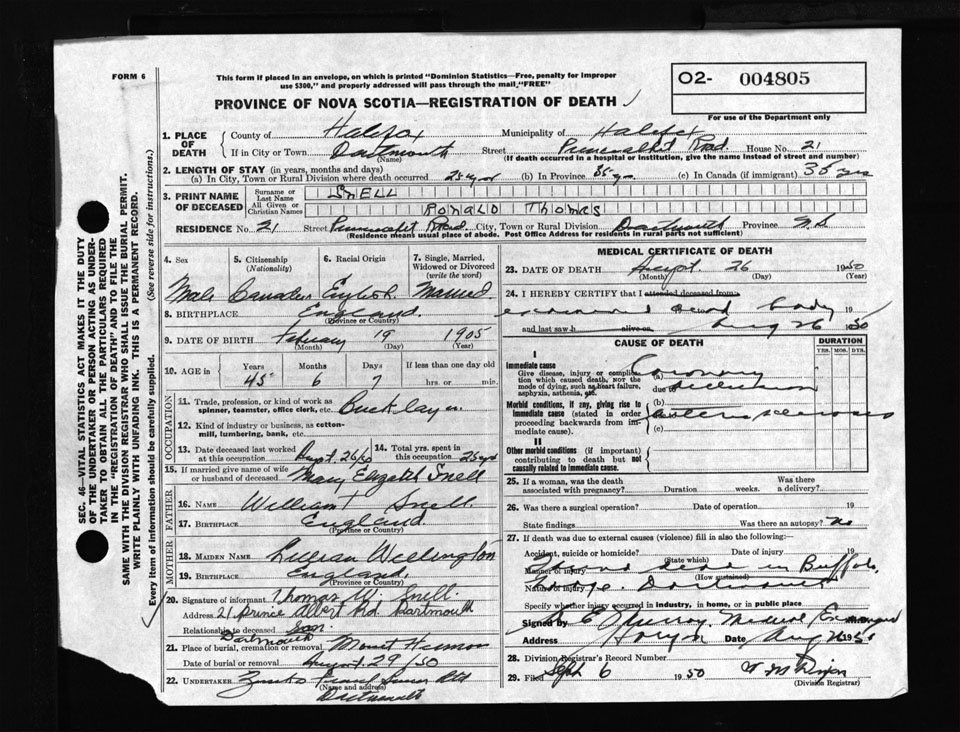 FORM 6
This form if placed in an envelope, on which is printed "Dominion Statistics—Free, penalty for improper
use $300," and properly addressed will pass through the mail "FREE"
O2- 004805
For use of the Department only
PROVINCE OF NOVA SCOTIA—REGISTRATION OF DEATH
1. PLACE OF DEATH
County of Halifax Municipality of Halifax
If in City or Town Dartmouth Street Prince Albert Road. House No. 21
(Name) (If death occurred in a hospital or institution, give the name instead of street and number)
2. LENGTH OF STAY (in years, months and days)
(a) In City, Town or Rural Division where death occurred (b) In Province (c) In Canada (if immigrant) 38 yrs
3. PRINT NAME OF DECEASED
Surname or Last Name SNELL
All Given or Christian Names RONALD THOMAS
RESIDENCE No. 21 Street Prince Albert Road. City, Town or Rural Division Dartmouth Province N.S
(Residence means usual place of abode. Post Office Address for residents in rural parts not sufficient)
4. Sex 5. Citizenship (Nationality) 6. Racial Origin 7. Single, Married, Widowed or Divorced (write the word)
Male Canadian English. Married.
8. BIRTHPLACE England.
(Province or Country)
9. DATE OF BIRTH February 19 1905
(Month) (Day) (Year)
10. AGE in Years Months Days If less than one day old
45 6 7 hrs. or min.
OCCUPATION
11. Trade, profession, or kind of work as
spinner, teamster, office clerk, etc. Bricklayer.
12. Kind of industry or business, as cotton-
mill, lumbering, bank, etc.
13. Date deceased last worked at this occupation 14. Total yrs. spent in this occupation
15. If married give name of wife
or husband of deceased Mary Elizabeth Snell
FATHER
16. NAME William T Snell.
17. BIRTHPLACE England.
(Province or Country)
MOTHER
18. MAIDEN NAME Lillian Wellington
19. BIRTHPLACE England.
(Province or Country)
20. Signature of informant Thomas W. Snell.
Address 21 Prince Albert Rd. Dartmouth
Relationship to deceased Son.
Dartmouth
21. Place of burial, cremation or removal Mount Hermon
Date of burial or removal August 29/50
22. UNDERTAKER
(Name and address)
Dartmouth
MEDICAL CERTIFICATE OF DEATH
23. DATE OF DEATH August. 26 1950
(Month) (Day)
24. I HEREBY CERTIFY that I attended deceased from:
examined dead body 19
and last saw h alive on Aug 26 1950
CAUSE OF DEATH
DURATION
YRS. MOS. DYS.
I
Immediate cause
Give disease, injury or complication which caused death, not the mode of dying, such as heart failure, asphyxia, asthenia, etc.
(a) Coronary
due to occlusion
Morbid conditions, if any, giving rise to immediate cause (stated in order proceeding backwards from immediate cause).
(b)
arteriosclerosis
(c)
II
Other morbid conditions (if important) contributing to death but not causally related to immediate cause.
25. If a woman, was the death
associated with pregnancy? Duration weeks. Was there a delivery?
26. Was there a surgical operation? Date of operation 19
State findings Was there an autopsy? No
27. If death was due to external causes (violence) fill in also the following:
Accident, suicide or homicide? Date of injury 19
(State which)
Manner of injury Found dead in Buffalo
(How sustained)
Nature of injury Lodge. Dartmouth
Specify whether injury occurred in industry, in home, or in public place
Signed by Murray, Medical Examiner
Address Date Aug 1950
28. Division Registrar's Record Number
29. Filed Sept 6 1950
(Division Registrar)
SEC. 46—VITAL STATISTICS ACT MAKES IT THE DUTY
OF THE UNDERTAKER OR PERSON ACTING AS UNDER-
TAKER TO OBTAIN ALL THE PARTICULARS REQUIRED
IN THE "REGISTRATION OF DEATH" AND TO FILE THE
SAME WITH THE DIVISION REGISTRAR WHO SHALL ISSUE THE BURIAL PERMIT.
WRITE PLAINLY WITH UNFADING INK. THIS IS A PERMANENT RECORD.
Every item of information should be carefully supplied. (See reverse side for instructions.)